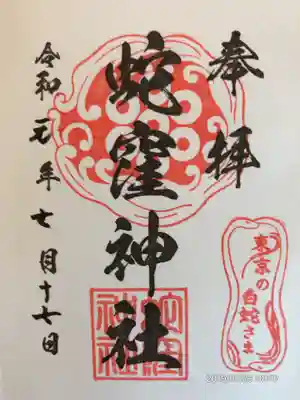 奉拝
蛇窪神社
令和元年七月十七日
東京の
白蛇さま
蛇窪
神社